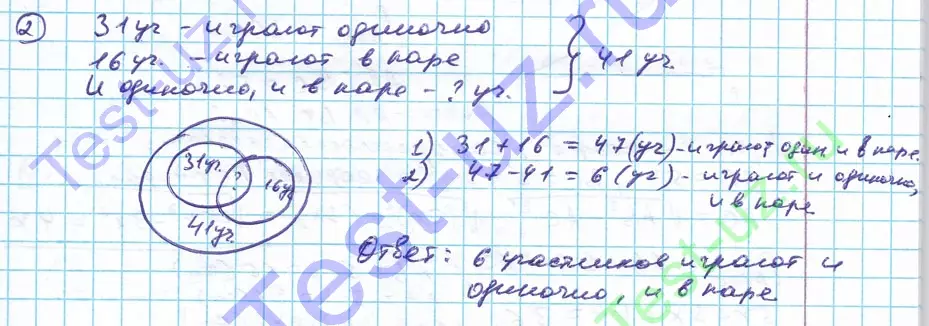 ② 31 уч - играют одиночно
16 уч. - играют в паре
И одиночно, и в паре - ? уч.
} 41 уч.
31уч. ? 16уч
41уч.
1) 31 + 16 = 47 (уч) - играют один. и в паре.
2) 47 - 41 = 6 (уч) - играют и одиночно,
и в паре
Ответ: 6 участников играют и
одиночно, и в паре
Test-uz.ru
Test-uz.ru
Test-uz.ru